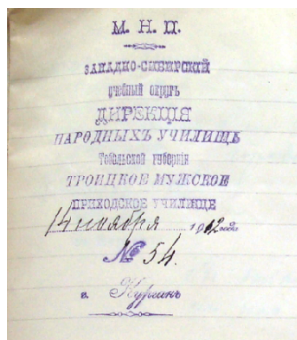 М. Н. П.
ЗАПАДНО-СИБИРСКІЙ
учебный округъ
ДИРЕКЦІЯ
НАРОДНЫХЪ УЧИЛИЩЪ
Тобольской губерніи
ТРОИЦКОЕ МУЖСКОЕ
ПРИХОДСКОЕ УЧИЛИЩЕ
14 ноября 1912 года
№ 54.
г. Курганъ